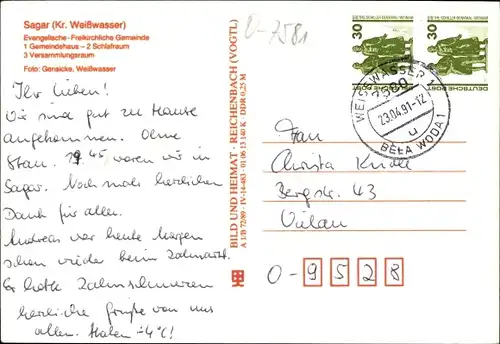 Sagar (Kr. Weißwasser)
Evangelische-Freikirchliche Gemeinde
1 Gemeindehaus – 2 Schlafraum
3 Versammlungsraum
Foto: Gensicke, Weißwasser
O-7581
Ihr Lieben!
Wir sind gut zu Hause
angekommen. Ohne
Stau. 19 45 waren wir in
Sagar. Nochmals herzlichen
Dank für alles.
Andreas war heute Morgen
schon wieder beim Zahnarzt.
Er hatte Zahnschmerzen
herzliche Grüße von uns
allen. Haben -4°C!
BILD UND HEIMAT · REICHENBACH (VOGTL)
A 1/B 72/89 · IV-14-483 · 01 06 13 140 K · DDR 0,25 M
30
30
DEUTSCHE POST
DEUTSCHE POST
WEISSWASSER 1
7580
23.04.91-12
u
BĚŁA WODA 1
Christa
Bergstr. 43
O-9528